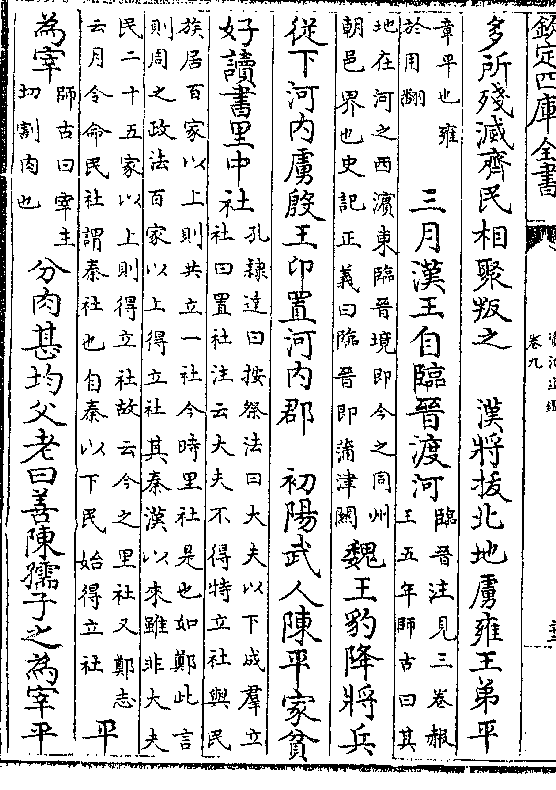 欽定四庫全書
卷九
多所殘滅齊民相聚叛之　漢將拔北地虜雍王弟平
章平也雍
於用翻
三月漢王自臨晉渡河
臨晉注見三卷赧
王五年師古曰其
地在河之西濵東臨晉境即今之同州
朝邑界也史記正義曰臨晉即蒲津關
魏王豹降將兵
從下河内虜殷王卬置河内郡　初陽武人陳平家貧
好讀書里中社
孔穎達曰按祭法曰大夫以下成羣立
社曰置社注云大夫不得特立社與民
族居百家以上則共立一社今時里社是也如鄭此言
則周之政法百家以上得立社其秦漢以來雖非大夫
民二十五家以上則得立社故云今之里社又鄭志
云月令命民社謂秦社也自秦以下民始得立社
平
為宰
師古曰宰主
切割肉也
分肉甚均父老曰善陳孺子之為宰平